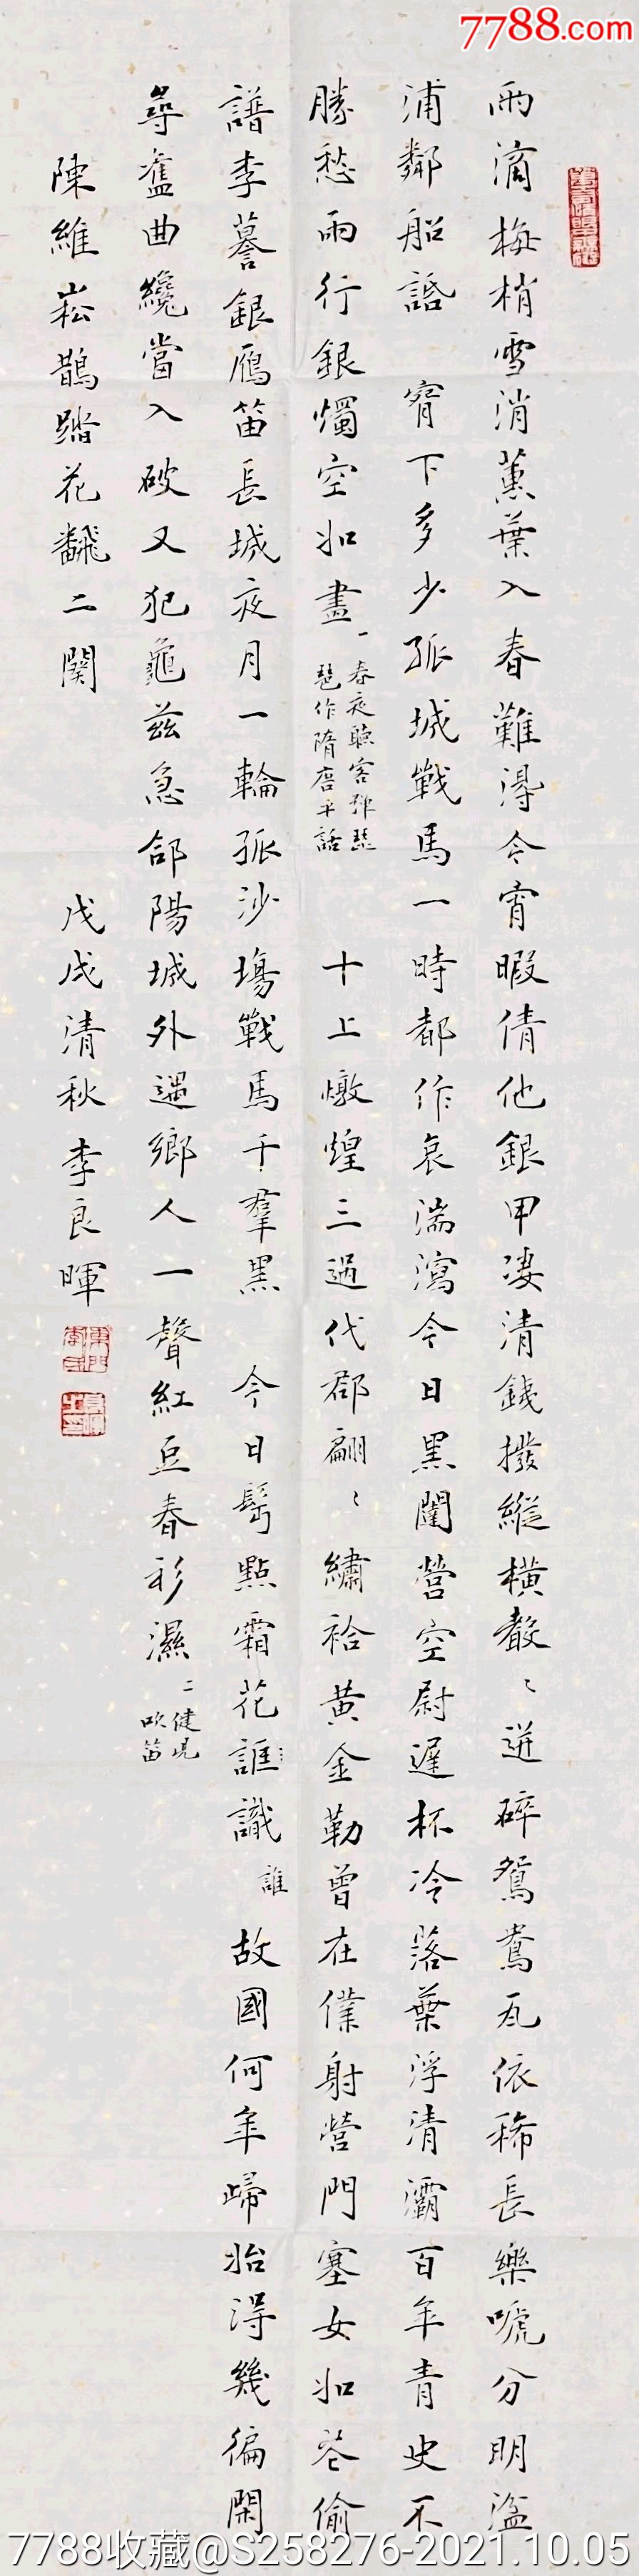 7788.com
雨滴梅梢雪消蕙葉入春難得今宵暇倩他銀甲凄清鉄撥縱橫聲〻迸碎鴛鴦瓦依稀長樂號分明湓
浦鄰船話 宵下多少孤城戰馬一時都作哀湍瀉今日黑闥營空尉遲杯冷落葉浮清灞百年青史不
勝愁兩行銀燭空如畫
一 春夜聽客彈琵
琶作隋唐平話
十上燉煌三過代郡翩〻繡袷黃金勒曾在僕射營門塞女如花偷
譜李謩銀雁笛長城夜月一輪孤沙場戰馬千羣黑 今日髩點霜花誰識
誰
故國何年歸始得幾徧閑
尋舊曲纔當入破又犯龜茲急郃陽城外遇鄉人一聲紅豆春衫濕
二 健兒
吹笛
陳維崧鵲踏花翻二闋
戊戌清秋李良暉
7788收藏@S258276-2021.10.05